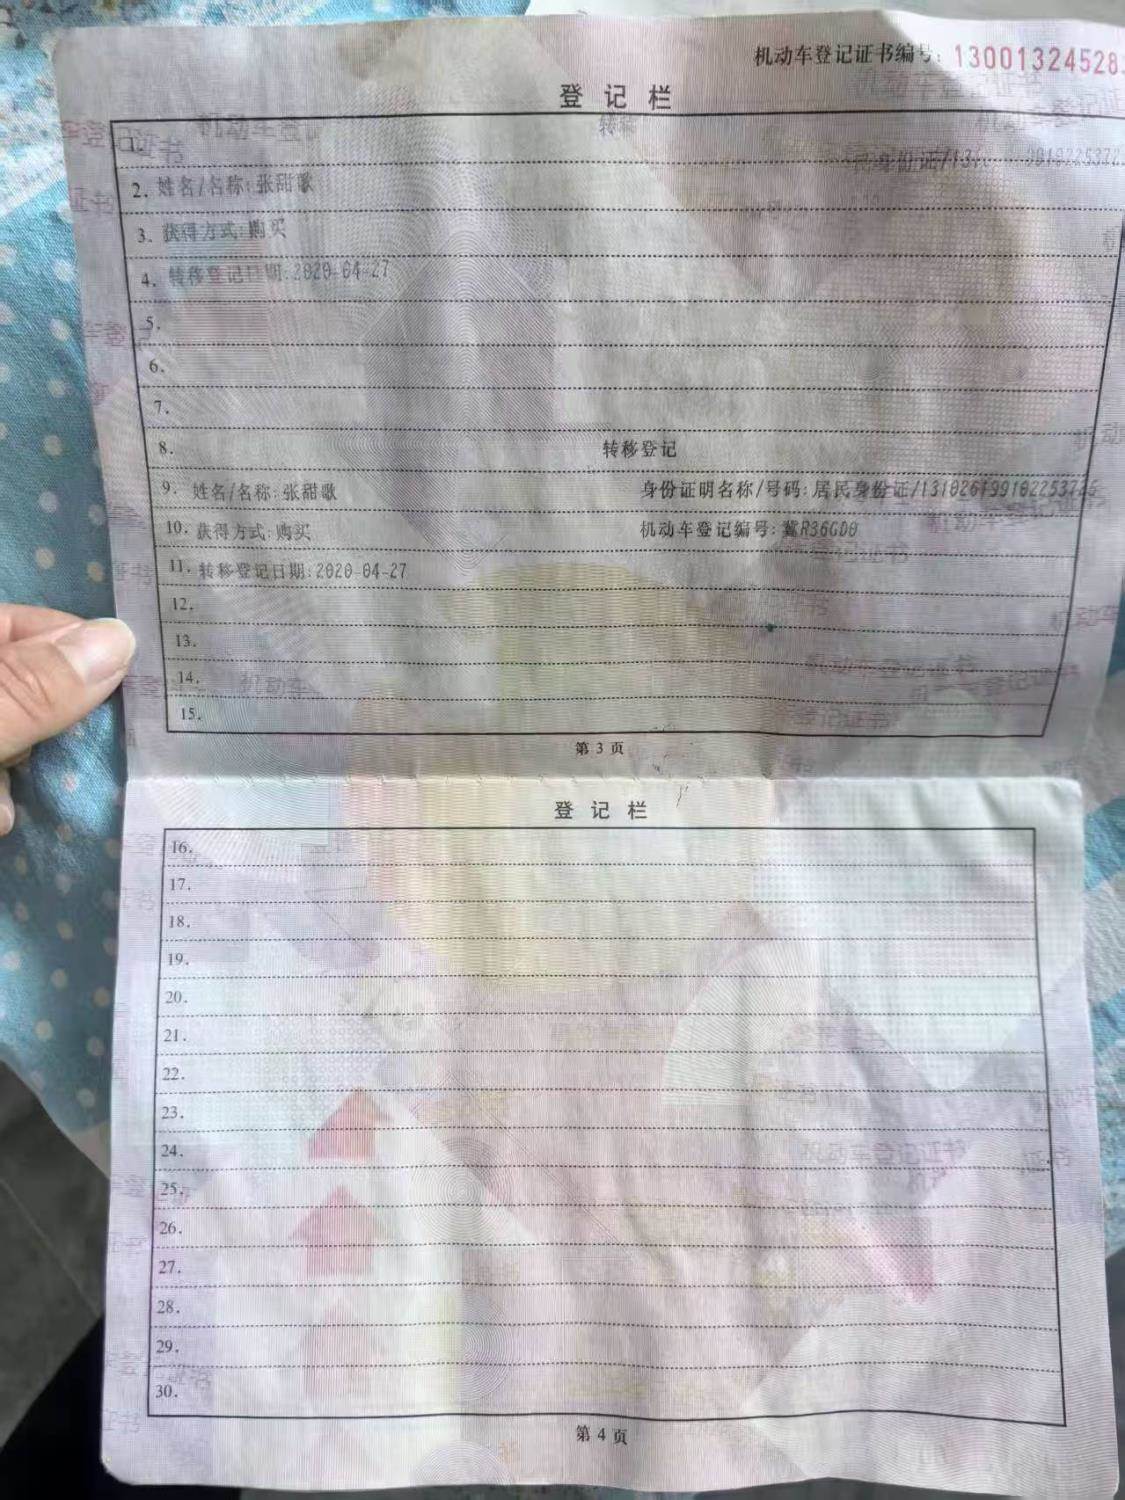 机动车登记证书编号: 13001324528
登记栏
1.
2. 姓名/名称:张甜歌
3. 获得方式:购买
4. 转移登记日期:2020-04-27
5.
6.
7.
8. 转移登记
9. 姓名/名称:张甜歌 身份证明名称/号码:居民身份证/
10. 获得方式:购买 机动车登记编号:冀R36GD0
11. 转移登记日期:2020-04-27
12.
13.
14.
15.
第 3 页
登记栏
16.
17.
18.
19.
20.
21.
22.
23.
24.
25.
26.
27.
28.
29.
30.
第 4 页